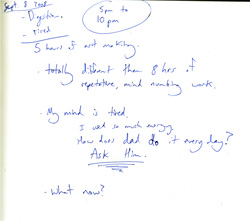 Sept 8 2008
- Digestion
- Tired
5pm to
10pm
5 hours of art making.
- totally different than 8 hrs of
repetative, mind numbing work.
- My mind is tired.
I used so much energy.
How does dad do it every day?
Ask Him.
- What now?